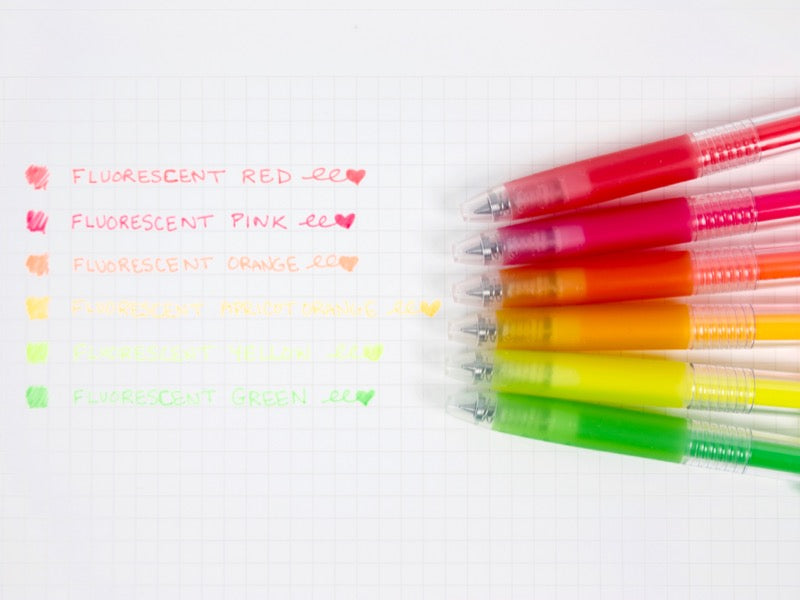 FLUORESCENT RED
FLUORESCENT PINK
FLUORESCENT ORANGE
FLUORESCENT APRICOT ORANGE
FLUORESCENT YELLOW
FLUORESCENT GREEN